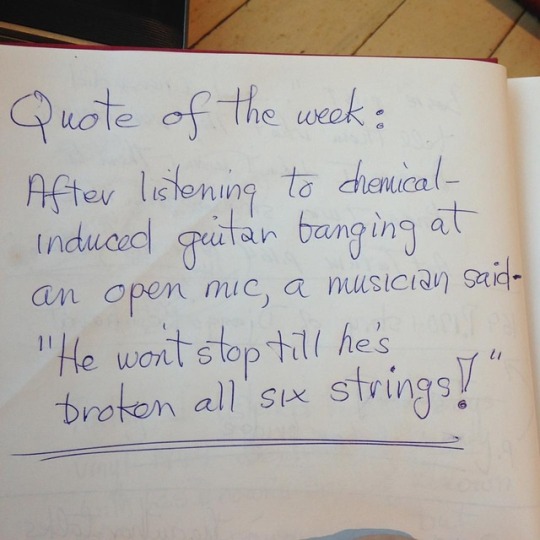 Quote of the week:
After listening to chemical-
induced guitar banging at
an open mic, a musician said-
"He won't stop till he's
broken all six strings!"